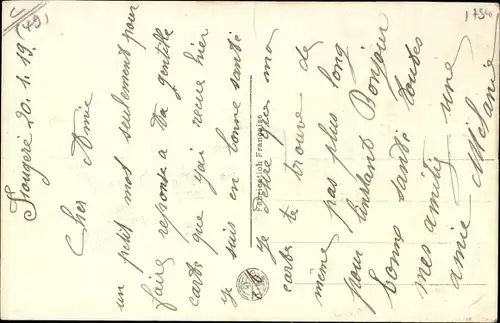 (49)
1754
Fougeré 20.1.19.
Cher Amie
un petit mot seulement pour
faire reponse a ta gentille
carte que j'ai recue hier
je suis en bonne santé
je desire que ma
carte te trouve de
même pas plus long
pour linstant Bonjour
bonne santé toutes
mes amitiés une
amie Mélanie
Fabrication Française